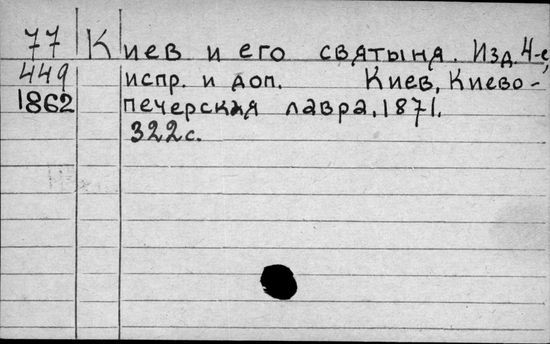 77 Киев и его святыня. Изд. 4-е,
449 испр. и доп. Киев, Киево-
1862 печерская лавра, 1871.
322 с.